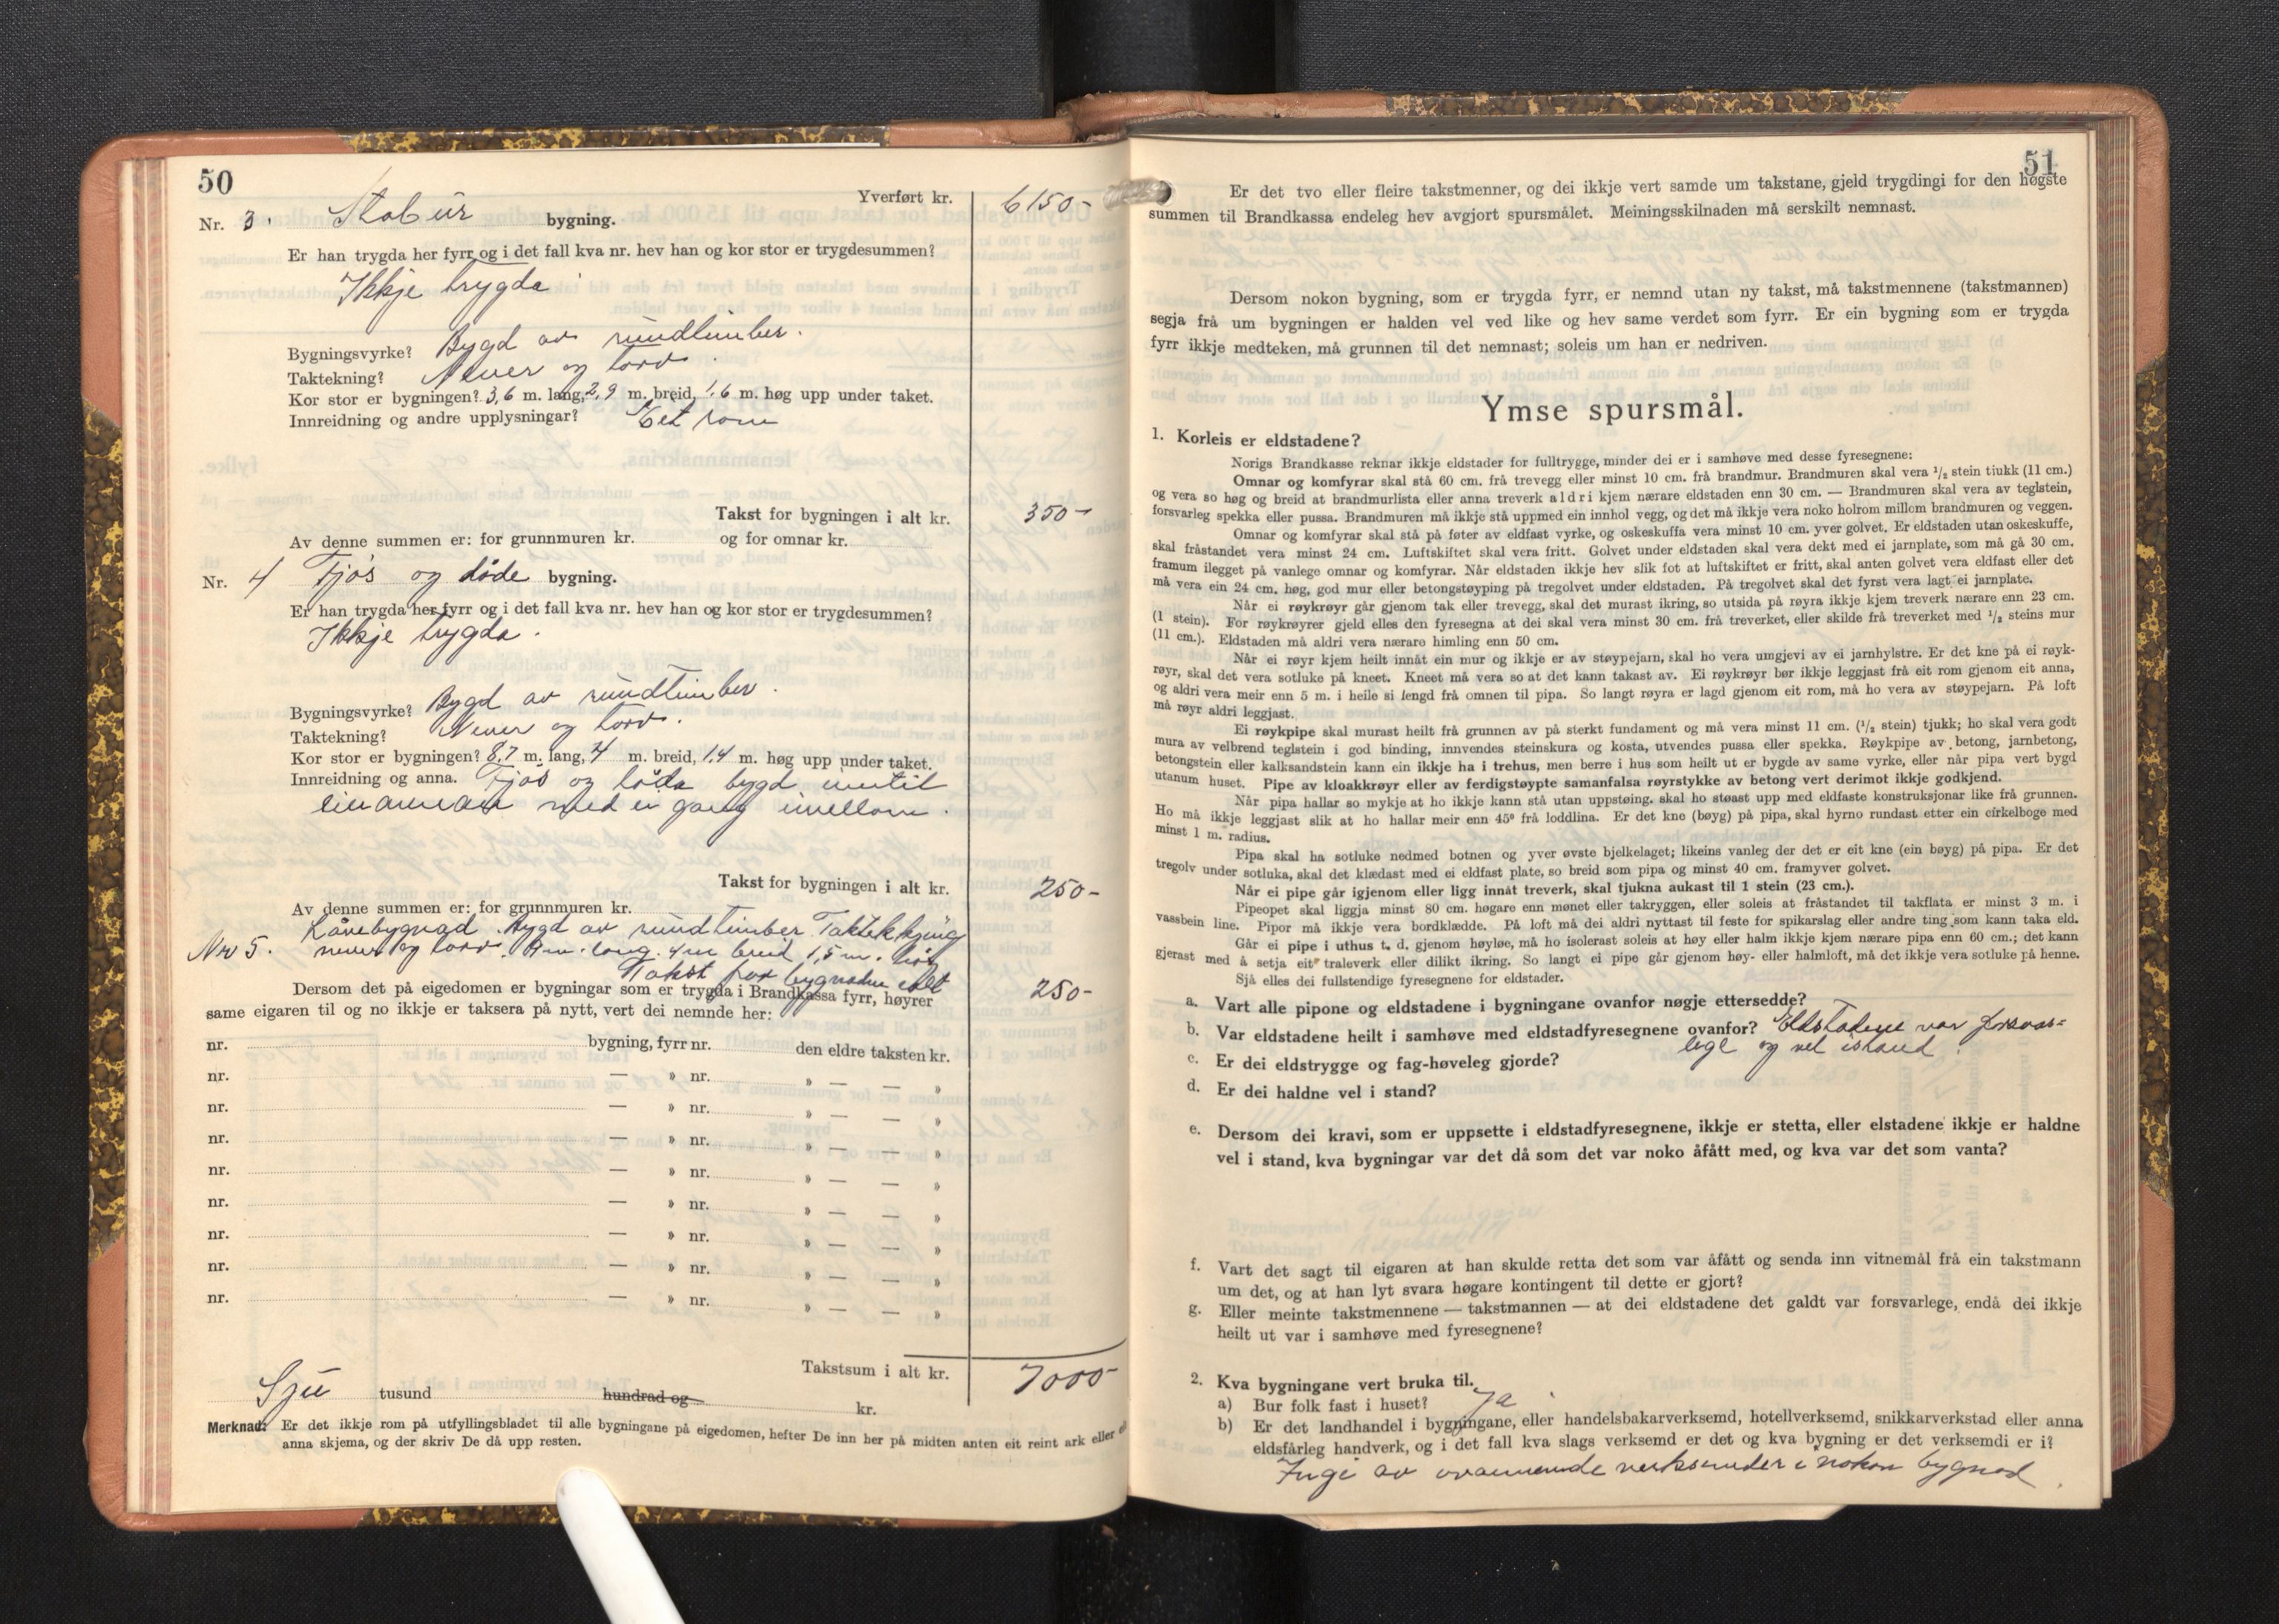 50
Yverført kr. 6150-
Nr. 3. Stabur bygning.
Er han trygda her fyrr og i det fall kva nr. hev han og kor stor er trygdesummen?
Ikkje trygda
Bygningsvyrke? Bygd av rundtimber.
Taktekning? Never og torv.
Kor stor er bygningen? 3,6 m. lang, 2,9 m. breid, 1,6 m. høg upp under taket.
Innreidning og andre upplysningar? Eet rom
Takst for bygningen i alt kr. 350-
Av denne summen er: for grunnmuren kr. og for omnar kr.
Nr. 4 Fjøs og løde bygning.
Er han trygda her fyrr og i det fall kva nr. hev han og kor stor er trygdesummen?
Ikkje trygda.
Bygningsvyrke? Bygd av rundtimber.
Taktekning? Never og torv.
Kor stor er bygningen? 8,7 m. lang, 4 m. breid, 1,4 m. høg upp under taket.
Innreidning og anna. Fjøs og løda bygd inntil
einannan med en gang imellom.
Takst for bygningen i alt kr. 250-
Av denne summen er: for grunnmuren kr.
Nr 5. Lånebygnad. Bygd av rundtimber Taktekkjing
never og torv. 9 m. lang. 4 m breid 1,5 m. høg
Takst for bygnaden ialt 250-
Dersom det på eigedomen er bygningar som er trygda i Brandkassa fyrr, høyrer
same eigaren til og no ikkje er taksera på nytt, vert dei nemnde her:
nr. bygning, fyrr nr. den eldre taksten kr.
nr. — » nr. » — — »
nr. — » nr. » — — »
nr. — » nr. » — — »
nr. — » nr. » — — »
nr. — » nr. » — — »
nr. — » nr. » — — »
nr. — » nr. » — — »
nr. — » nr. » — — »
Takstsum i alt kr. 7000-
Sju tusund hundrad og kr.
Merknad: Er det ikkje rom på utfyllingsbladet til alle bygningane på eigedomen, hefter De inn her på midten anten eit reint ark eller
anna skjema, og der skriv De då upp resten.
51
Er det tvo eller fleire takstmenner, og dei ikkje vert samde um takstane, gjeld trygdingi for den høgste
summen til Brandkassa endeleg hev avgjort spursmålet. Meiningsskilnaden må serskilt nemnast.
Dersom nokon bygning, som er trygda fyrr, er nemnd utan ny takst, må takstmennene (takstmannen)
segja frå um bygningen er halden vel ved like og hev same verdet som fyrr. Er ein bygning som er trygda
fyrr ikkje medteken, må grunnen til det nemnast; soleis um han er nedriven.
Ymse spursmål.
1. Korleis er eldstadene?
Norigs Brandkasse reknar ikkje eldstader for fulltrygge, minder dei er i samhøve med desse fyresegnene:
Omnar og komfyrar skal stå 60 cm. frå trevegg eller minst 10 cm. frå brandmur. Brandmuren skal vera 1/2 stein tiukk (11 cm.)
og vera so høg og breid at brandmurlista eller anna treverk aldri kjem nærare eldstaden enn 30 cm. — Brandmuren skal vera av teglstein,
forsvarleg spekka eller pussa. Brandmuren må ikkje stå uppmed ein innhol vegg, og det må ikkje vera noko holrom millom brandmuren og veggen.
Omnar og komfyrar skal stå på føter av eldfast vyrke, og oskeskuffa vera minst 10 cm. yver golvet. Er eldstaden utan oskeskuffe,
skal fråstandet vera minst 24 cm. Luftskiftet skal vera fritt. Golvet under eldstaden skal vera dekt med ei jarnplate, som må gå 30 cm.
framum ilegget på vanlege omnar og komfyrar. Når eldstaden ikkje hev slik fot at luftskiftet er fritt, skal anten golvet vera eldfast eller det
må vera ein 24 cm. høg, god mur eller betongstøyping på tregolvet under eldstaden. På tregolvet skal det fyrst vera lagt ei jarnplate.
Når ei røykrøyr går gjenom tak eller trevegg, skal det murast ikring, so utsida på røyra ikkje kjem treverk nærare enn 23 cm.
(1 stein). For røykrøyrer gjeld elles den fyresegna at dei skal vera minst 30 cm. frå treverket, eller skilde frå treverket med 1/2 steins mur
(11 cm.). Eldstaden må aldri vera nærare himling enn 50 cm.
Når ei røyr kjem heilt innåt ein mur og ikkje er av støypejarn, skal ho vera umgjevi av ei jarnhylstre. Er det kne på ei røyk-
røyr, skal det vera sotluke på kneet. Kneet må vera so at det kann takast av. Ei røykrøyr bør ikkje leggjast frå eit rom gjenom eit anna,
og aldri vera meir enn 5 m. i heile si lengd frå omnen til pipa. So langt røyra er lagd gjenom eit rom, må ho vera av støypejarn. På loft
må røyr aldri leggjast.
Ei røykpipe skal murast heilt frå grunnen av på sterkt fundament og må vera minst 11 cm. (1/2 stein) tjukk; ho skal vera godt
mura av velbrend teglstein i god binding, innvendes steinskura og kosta, utvendes pussa eller spekka. Røykpipe av betong, jarnbetong,
betongstein eller kalksandstein kann ein ikkje ha i trehus, men berre i hus som heilt ut er bygde av same vyrke, eller når pipa vert bygd
utanum huset. Pipe av kloakkrøyr eller av ferdigstøypte samanfalsa røyrstykke av betong vert derimot ikkje godkjend.
Når pipa hallar so mykje at ho ikkje kann stå utan uppstøing. skal ho støast upp med eldfaste konstruksjonar like frå grunnen.
Ho må ikkje leggjast slik at ho hallar meir enn 45° frå loddlina. Er det kne (bøyg) på pipa, skal hyrno rundast etter ein cirkelboge med
minst 1 m. radius.
Pipa skal ha sotluke nedmed botnen og yver øvste bjelkelaget; likeins vanleg der det er eit kne (ein bøyg) på pipa. Er det
tregolv under sotluka, skal det klædast med ei eldfast plate, so breid som pipa og minst 40 cm. framyver golvet.
Når ei pipe går igjenom eller ligg innåt treverk, skal tjukna aukast til 1 stein (23 cm.).
Pipeopet skal liggja minst 80 cm. høgare enn mønet eller takryggen, eller soleis at fråstandet til takflata er minst 3 m. i
vassbein line. Pipor må ikkje vera bordklædde. På loft må dei aldri nyttast til feste for spikarslag eller andre ting som kann taka eld.
Går ei pipe i uthus t. d. gjenom høyløe, må ho isolerast soleis at høy eller halm ikkje kjem nærare pipa enn 60 cm.; det kann
gjerast med å setja eit traleverk eller dilikt ikring. So langt ei pipe går gjenom høy- eller halmloft, må det ikkje vera sotluke på henne.
Sjå elles dei fullstendige fyresegnene for eldstader.
a. Vart alle pipone og eldstadene i bygningane ovanfor nøgje ettersedde?
b. Var eldstadene heilt i samhøve med eldstadfyresegnene ovanfor? Eldstadene var forsvar=
lege og vel istand.
c. Er dei eldstrygge og fag-høveleg gjorde?
d. Er dei haldne vel i stand?
e. Dersom dei kravi, som er uppsette i eldstadfyresegnene, ikkje er stetta, eller elstadene ikkje er haldne
vel i stand, kva bygningar var det då som det var noko åfått med, og kva var det som vanta?
f. Vart det sagt til eigaren at han skulde retta det som var åfått og senda inn vitnemål frå ein takstmann
um det, og at han lyt svara høgare kontingent til dette er gjort?
g. Eller meinte takstmennene — takstmannen — at dei eldstadene det galdt var forsvarlege, endå dei ikkje
heilt ut var i samhøve med fyresegnene?
2. Kva bygningane vert bruka til.
a) Bur folk fast i huset? Ja
b) Er det landhandel i bygningane, eller handelsbakarverksemd, hotellverksemd, snikkarverkstad eller anna
eldsfårleg handverk, og i det fall kva slags verksemd er det og kva bygning er det verksemdi er i?
Ingi av ovannemnde verksemder i nokon bygnad.